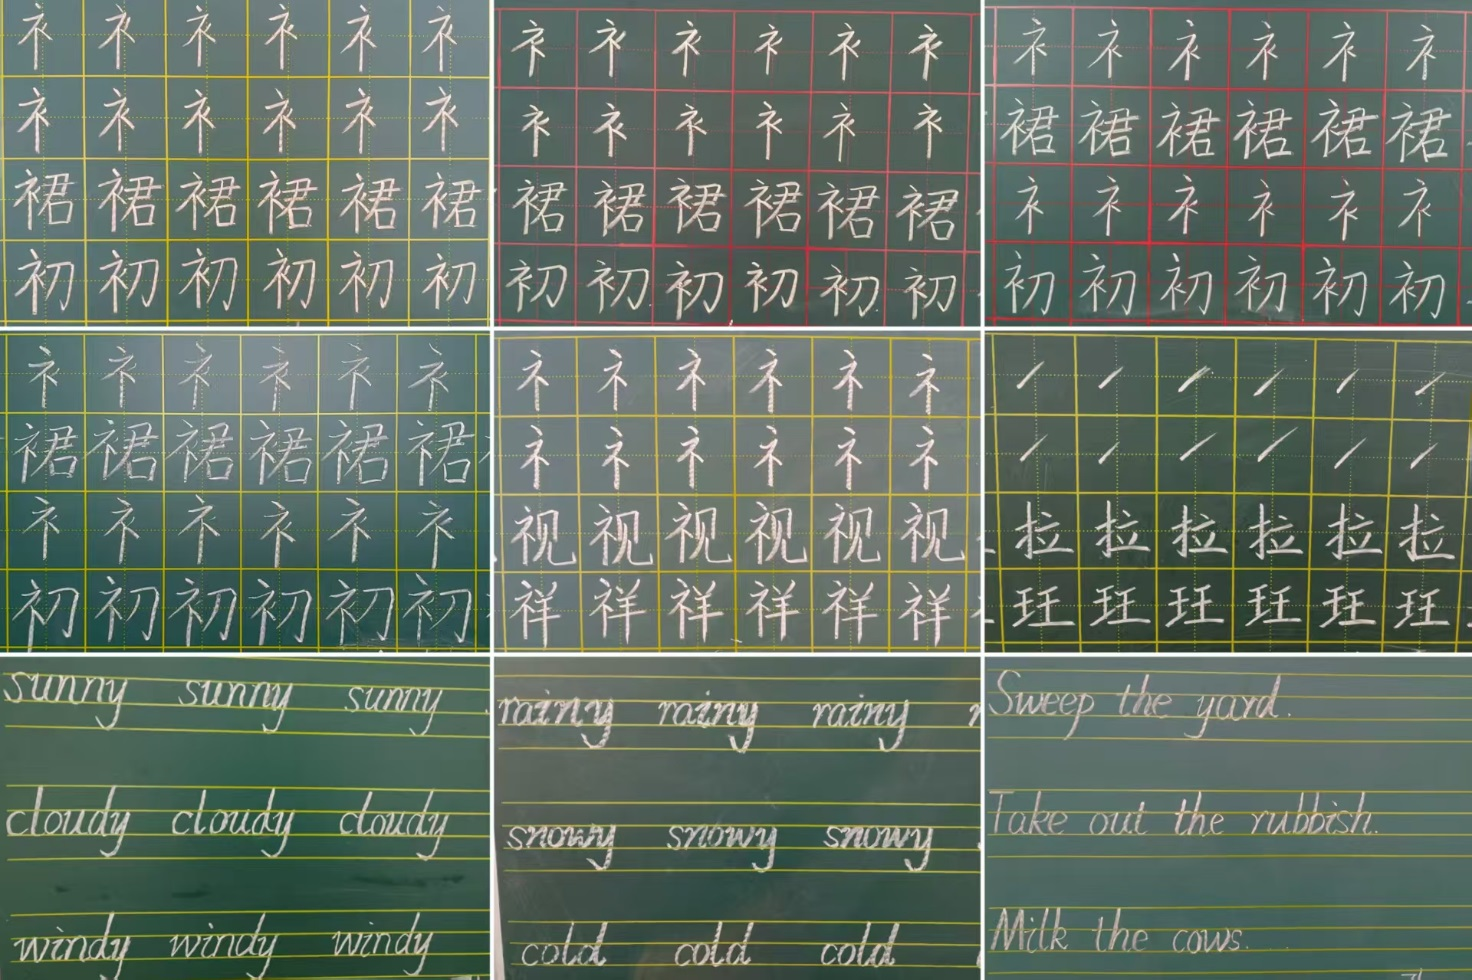 衤 衤 衤 衤 衤 衤
衤 衤 衤 衤 衤 衤
裙 裙 裙 裙 裙 裙
初 初 初 初 初 初
衤 衤 衤 衤 衤 衤
衤 衤 衤 衤 衤 衤
裙 裙 裙 裙 裙 裙
初 初 初 初 初 初
衤 衤 衤 衤 衤 衤
裙 裙 裙 裙 裙 裙
衤 衤 衤 衤 衤 衤
初 初 初 初 初 初
衤 衤 衤 衤 衤 衤
裙 裙 裙 裙 裙 裙
衤 衤 衤 衤 衤 衤
初 初 初 初 初 初
礻 礻 礻 礻 礻 礻
礻 礻 礻 礻 礻 礻
视 视 视 视 视 视
祥 祥 祥 祥 祥 祥
㇀ ㇀ ㇀ ㇀ ㇀ ㇀
㇀ ㇀ ㇀ ㇀ ㇀ ㇀
拉 拉 拉 拉 拉 拉
玨 玨 玨 玨 玨 玨
sunny sunny sunny
cloudy cloudy cloudy
windy windy windy
rainy rainy rainy
snowy snowy snowy
cold cold cold
Sweep the yard.
Take out the rubbish.
Milk the cows.